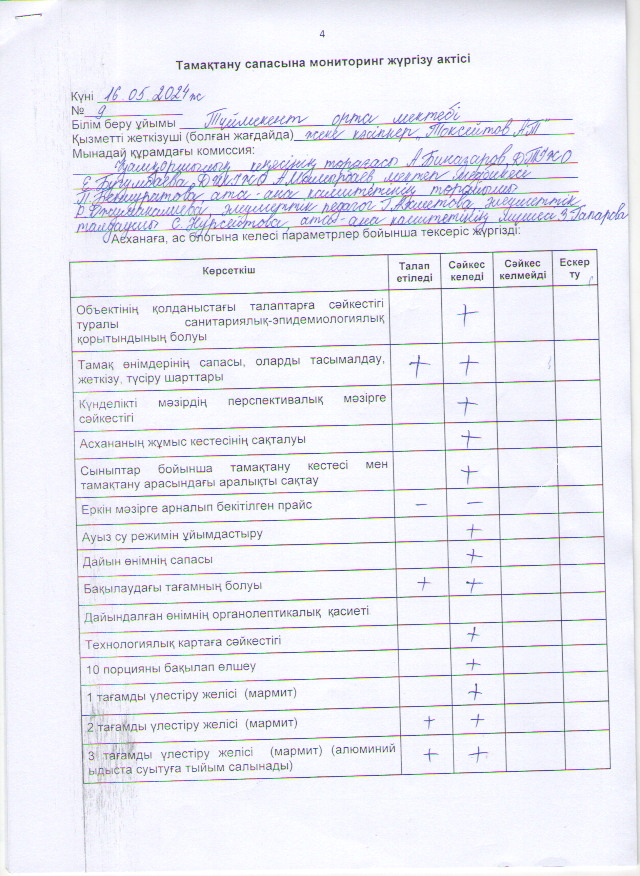 4
Тамақтану сапасына мониторинг жүргізу актісі
Күні 16.05.2024ж
№ 9
Білім беру ұйымы Түймекент орта мектебі
Қызметті жеткізуші (болған жағдайда) жеке кәсіпкер "Токсейтов А.Т"
Мынадай құрамдағы комиссия:
Қамқоршылық кеңесінің төрағасы А. ДТІЖО
Е. ДТІЖО мектеп медбикесі
ата-ана комитетінің төрайымы
әлеуметтік педагог Г. Ахметова әлеуметтік
Е. Нурсеитова, ата-ана комитетінің мүшесі З. Гапарова
Асханаға, ас блогына келесі параметрлер бойынша тексеріс жүргізді:
Көрсеткіш Талап етіледі Сәйкес келеді Сәйкес келмейді Ескерту
Объектінің қолданыстағы талаптарға сәйкестігі
туралы санитариялық-эпидемиологиялық +
қорытындының болуы
Тамақ өнімдерінің сапасы, оларды тасымалдау, + +
жеткізу, түсіру шарттары
Күнделікті мәзірдің перспективалық мәзірге +
сәйкестігі
Асхананың жұмыс кестесінің сақталуы +
Сыныптар бойынша тамақтану кестесі мен +
тамақтану арасындағы аралықты сақтау
Еркін мәзірге арналып бекітілген прайс – –
Ауыз су режимін ұйымдастыру +
Дайын өнімнің сапасы +
Бақылаудағы тағамның болуы + +
Дайындалған өнімнің органолептикалық қасиеті
Технологиялық картаға сәйкестігі +
10 порцияны бақылап өлшеу +
1 тағамды үлестіру желісі (мармит) +
2 тағамды үлестіру желісі (мармит) + +
3 тағамды үлестіру желісі (мармит) (алюминий + +
ыдыста суытуға тыйым салынады)